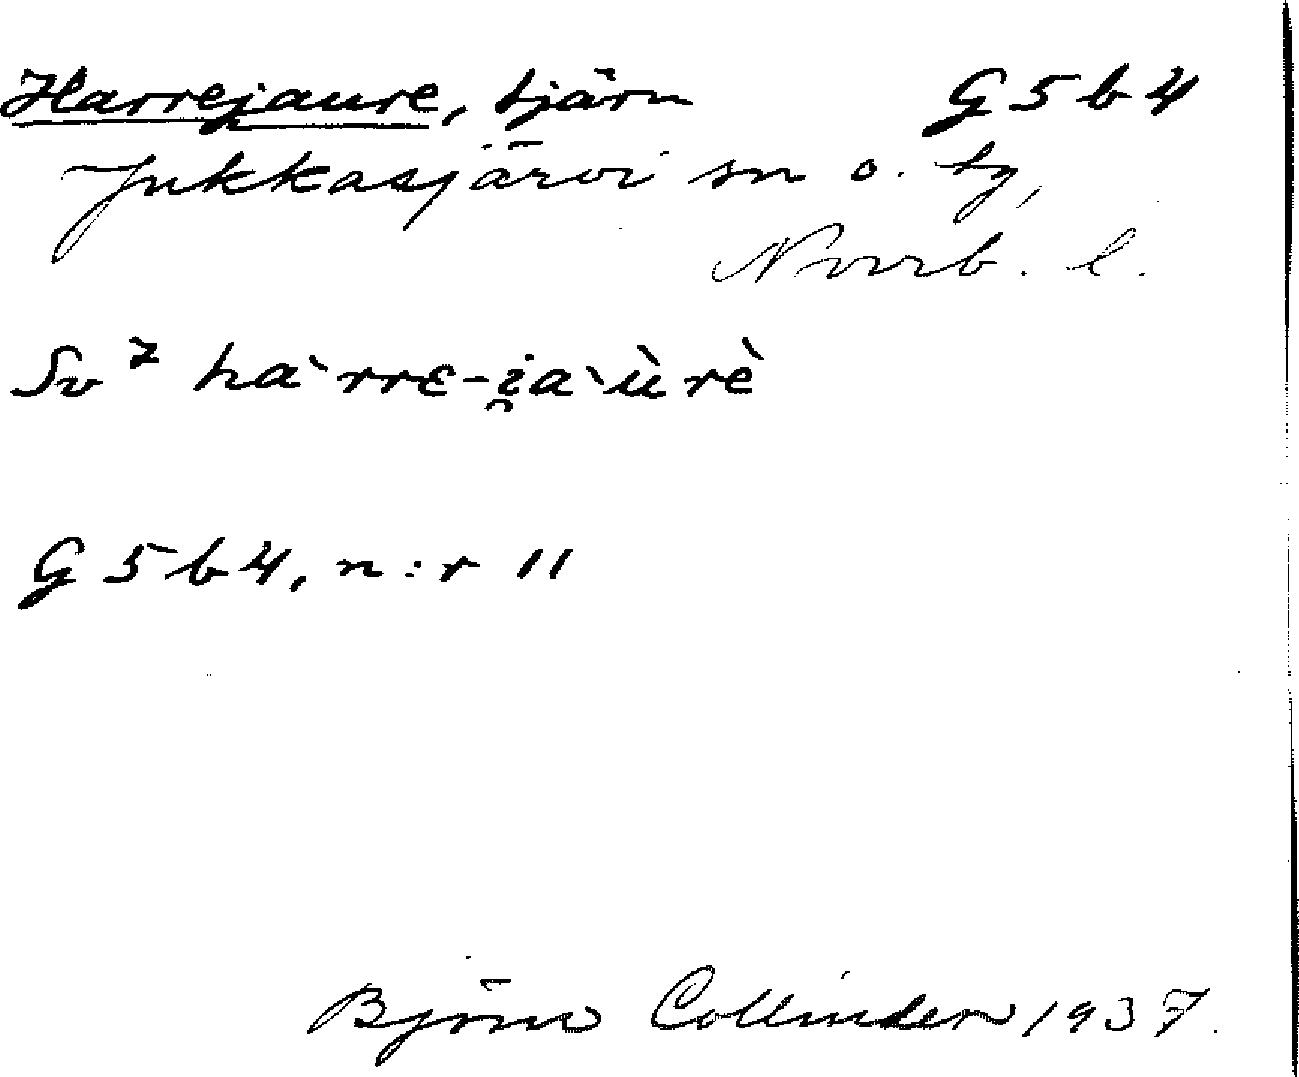 Harrejaure, tjärn G5b4
Jukkasjärvi sn o. tg,
Norrb. l.
Sv² ha`rrɛ-i̯a`ùrè
G5b4, n:r 11
Björn Collinder 1937.